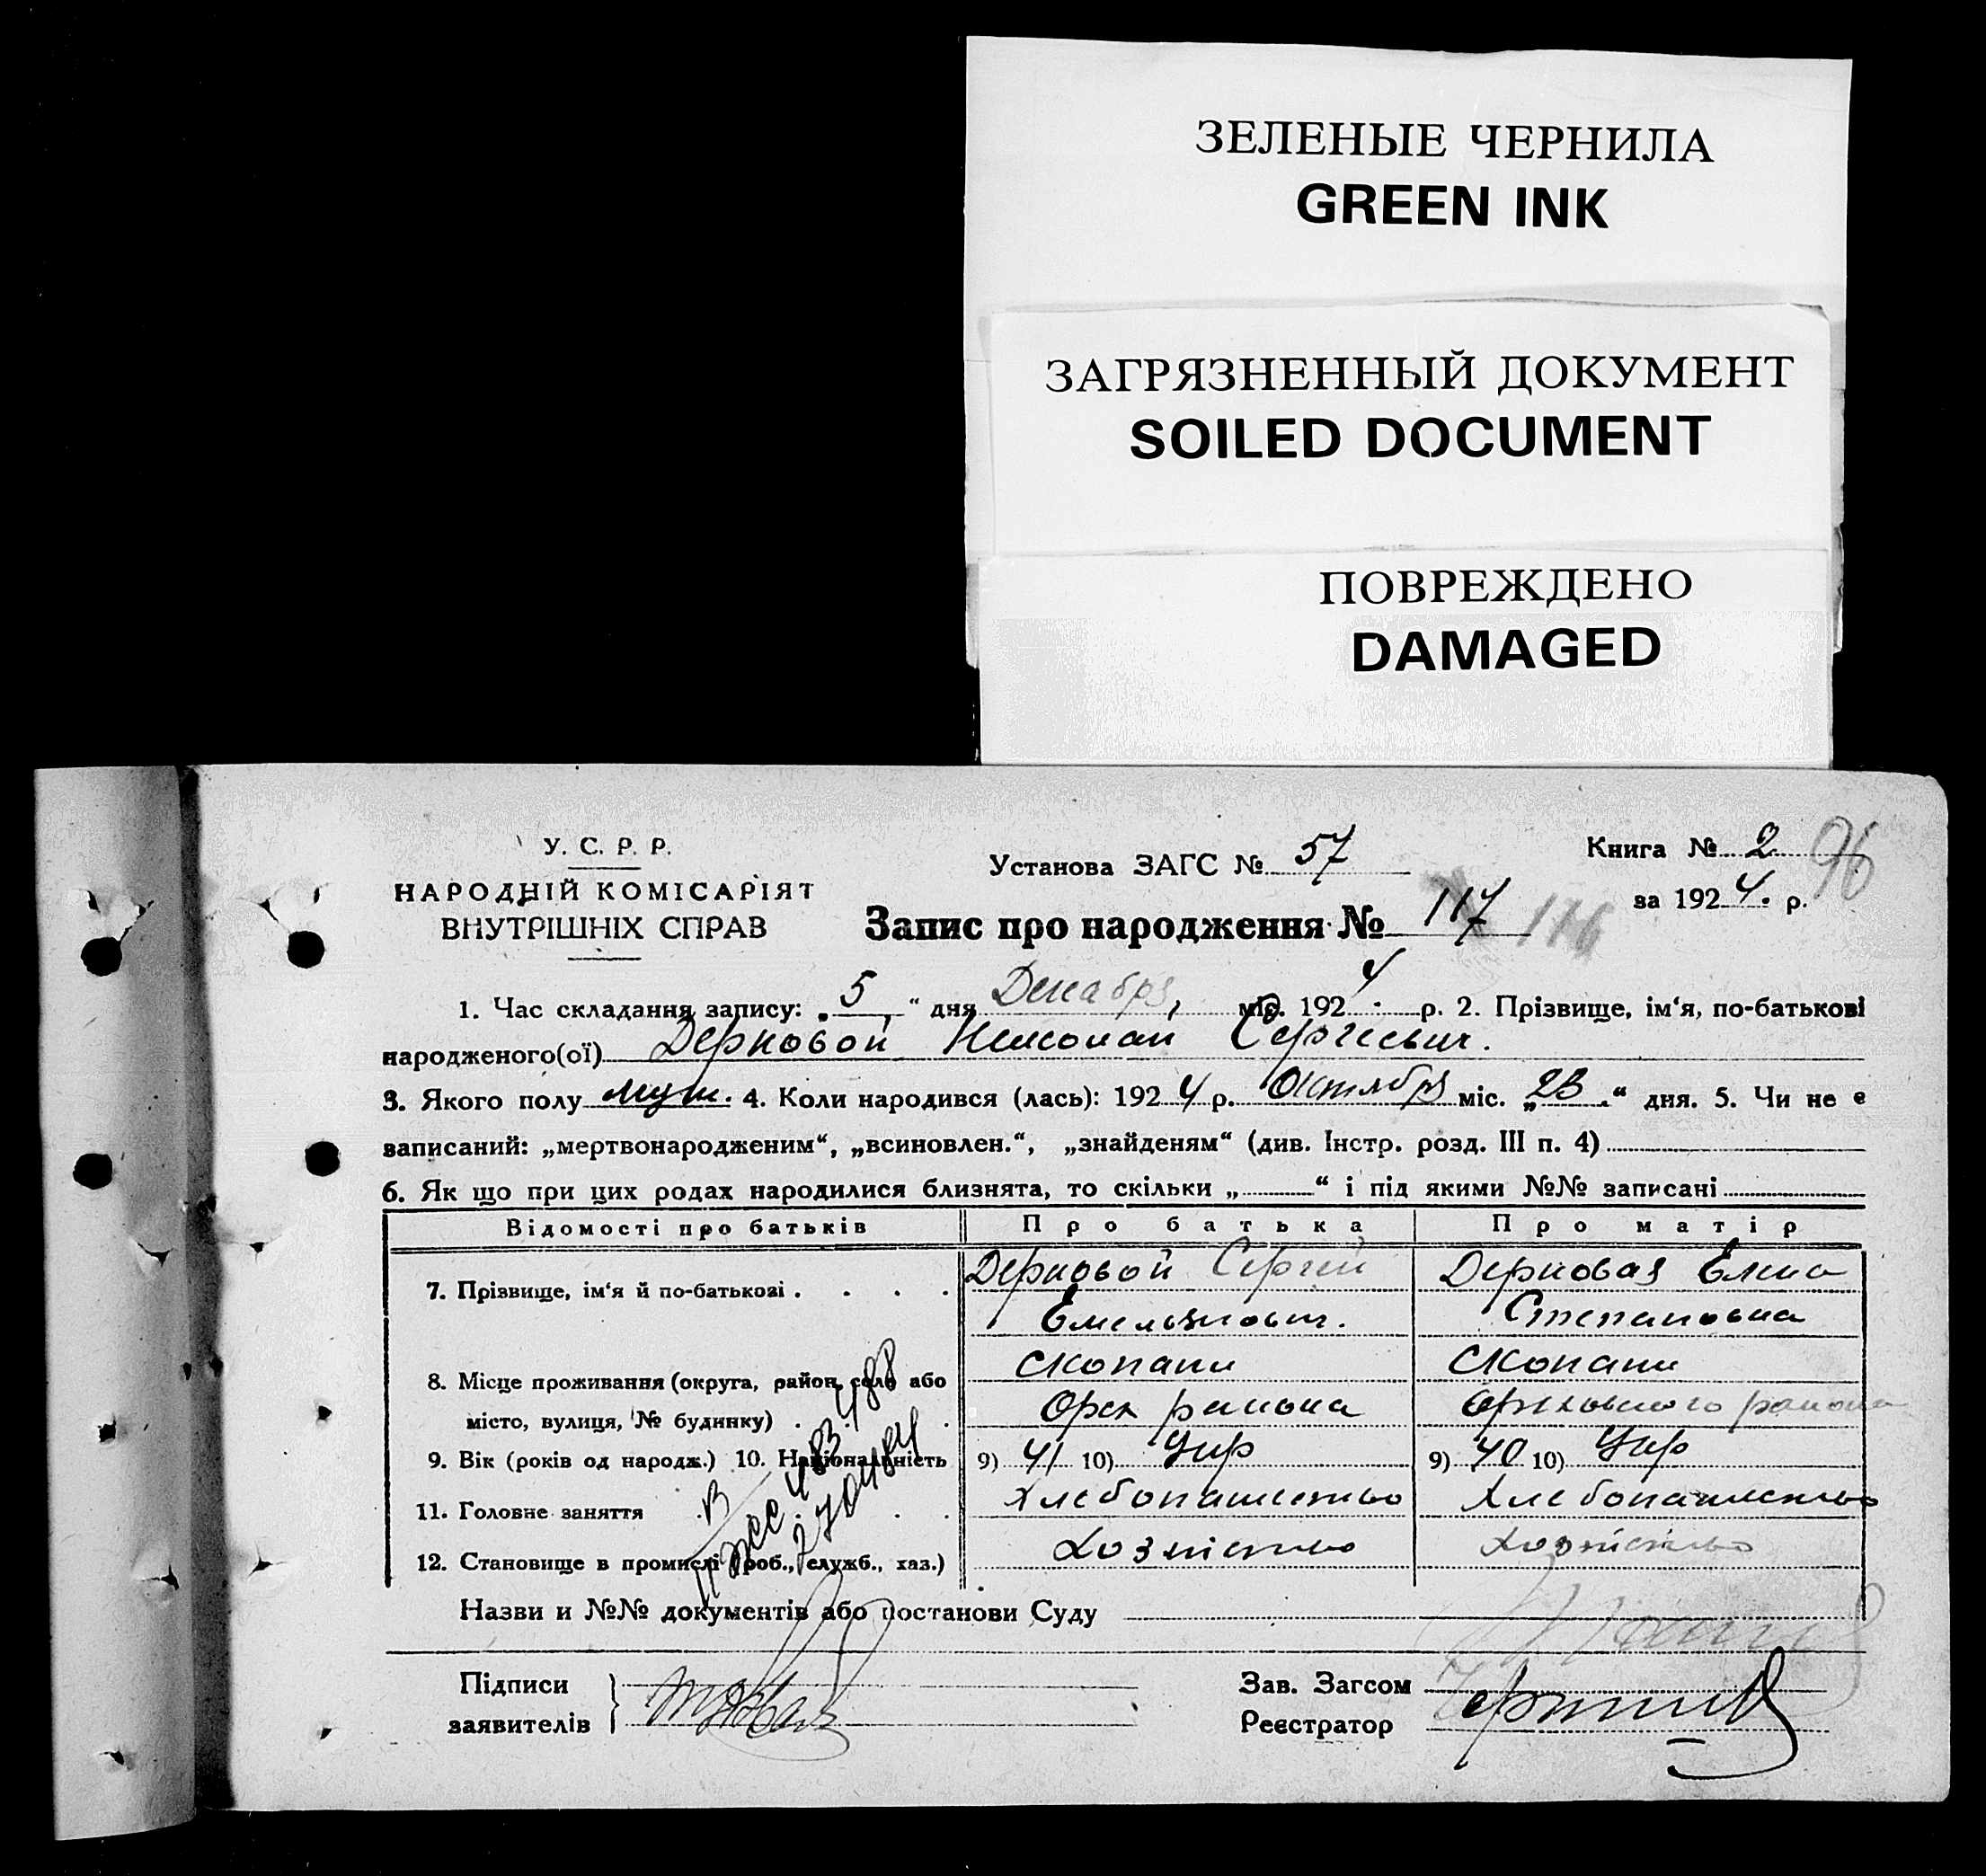 ЗЕЛЕНЫЕ ЧЕРНИЛА
GREEN INK
ЗАГРЯЗНЕННЫЙ ДОКУМЕНТ
SOILED DOCUMENT
ПОВРЕЖДЕНО
DAMAGED
У. С. Р. Р.
НАРОДНІЙ КОМІСАРІЯТ
ВНУТРІШНІХ СПРАВ
Установа ЗАГС № 57
Книга № 2 96
за 1924. р.
Запис про народження № 117 116
1. Час складання запису: „5“ дня Декабря, міс. 1924 р. 2. Прізвище, ім‘я, по-батькові
народженого(ої) Дерковой Николай Сергеевич.
3. Якого полу муж. 4. Коли народився (лась): 1924 р. Октября міс. „23.“ дня. 5. Чи не е
записаний: „мертвонародженим“, „всиновлен.“, „знайденям“ (див. Інстр. розд. III п. 4)
6. Як що при цих родах народилися близнята, то скільки „ “ і під якими №№ записані
Відомості про батьків Про батька Про матір
7. Прізвище, ім‘я й по-батькові Дерковой Сергей Дерковая Елена
Емельянович. Степановна
8. Місце проживання (округа, район, село або Скопани Скопани
місто, вулиця, № будинку) Орех района Ореховского района
9. Вік (років од народж.) 10. Національність 9) 41 10) Укр 9) 40 10) Укр
11. Головне заняття Хлебопашество Хлебопашество
12. Становище в промислі (роб., служб., хаз.) Хозяйство Хозяйство
Назви и №№ документів або постанови Суду
Підписи
заявителів
Зав. Загсом
Реєстратор